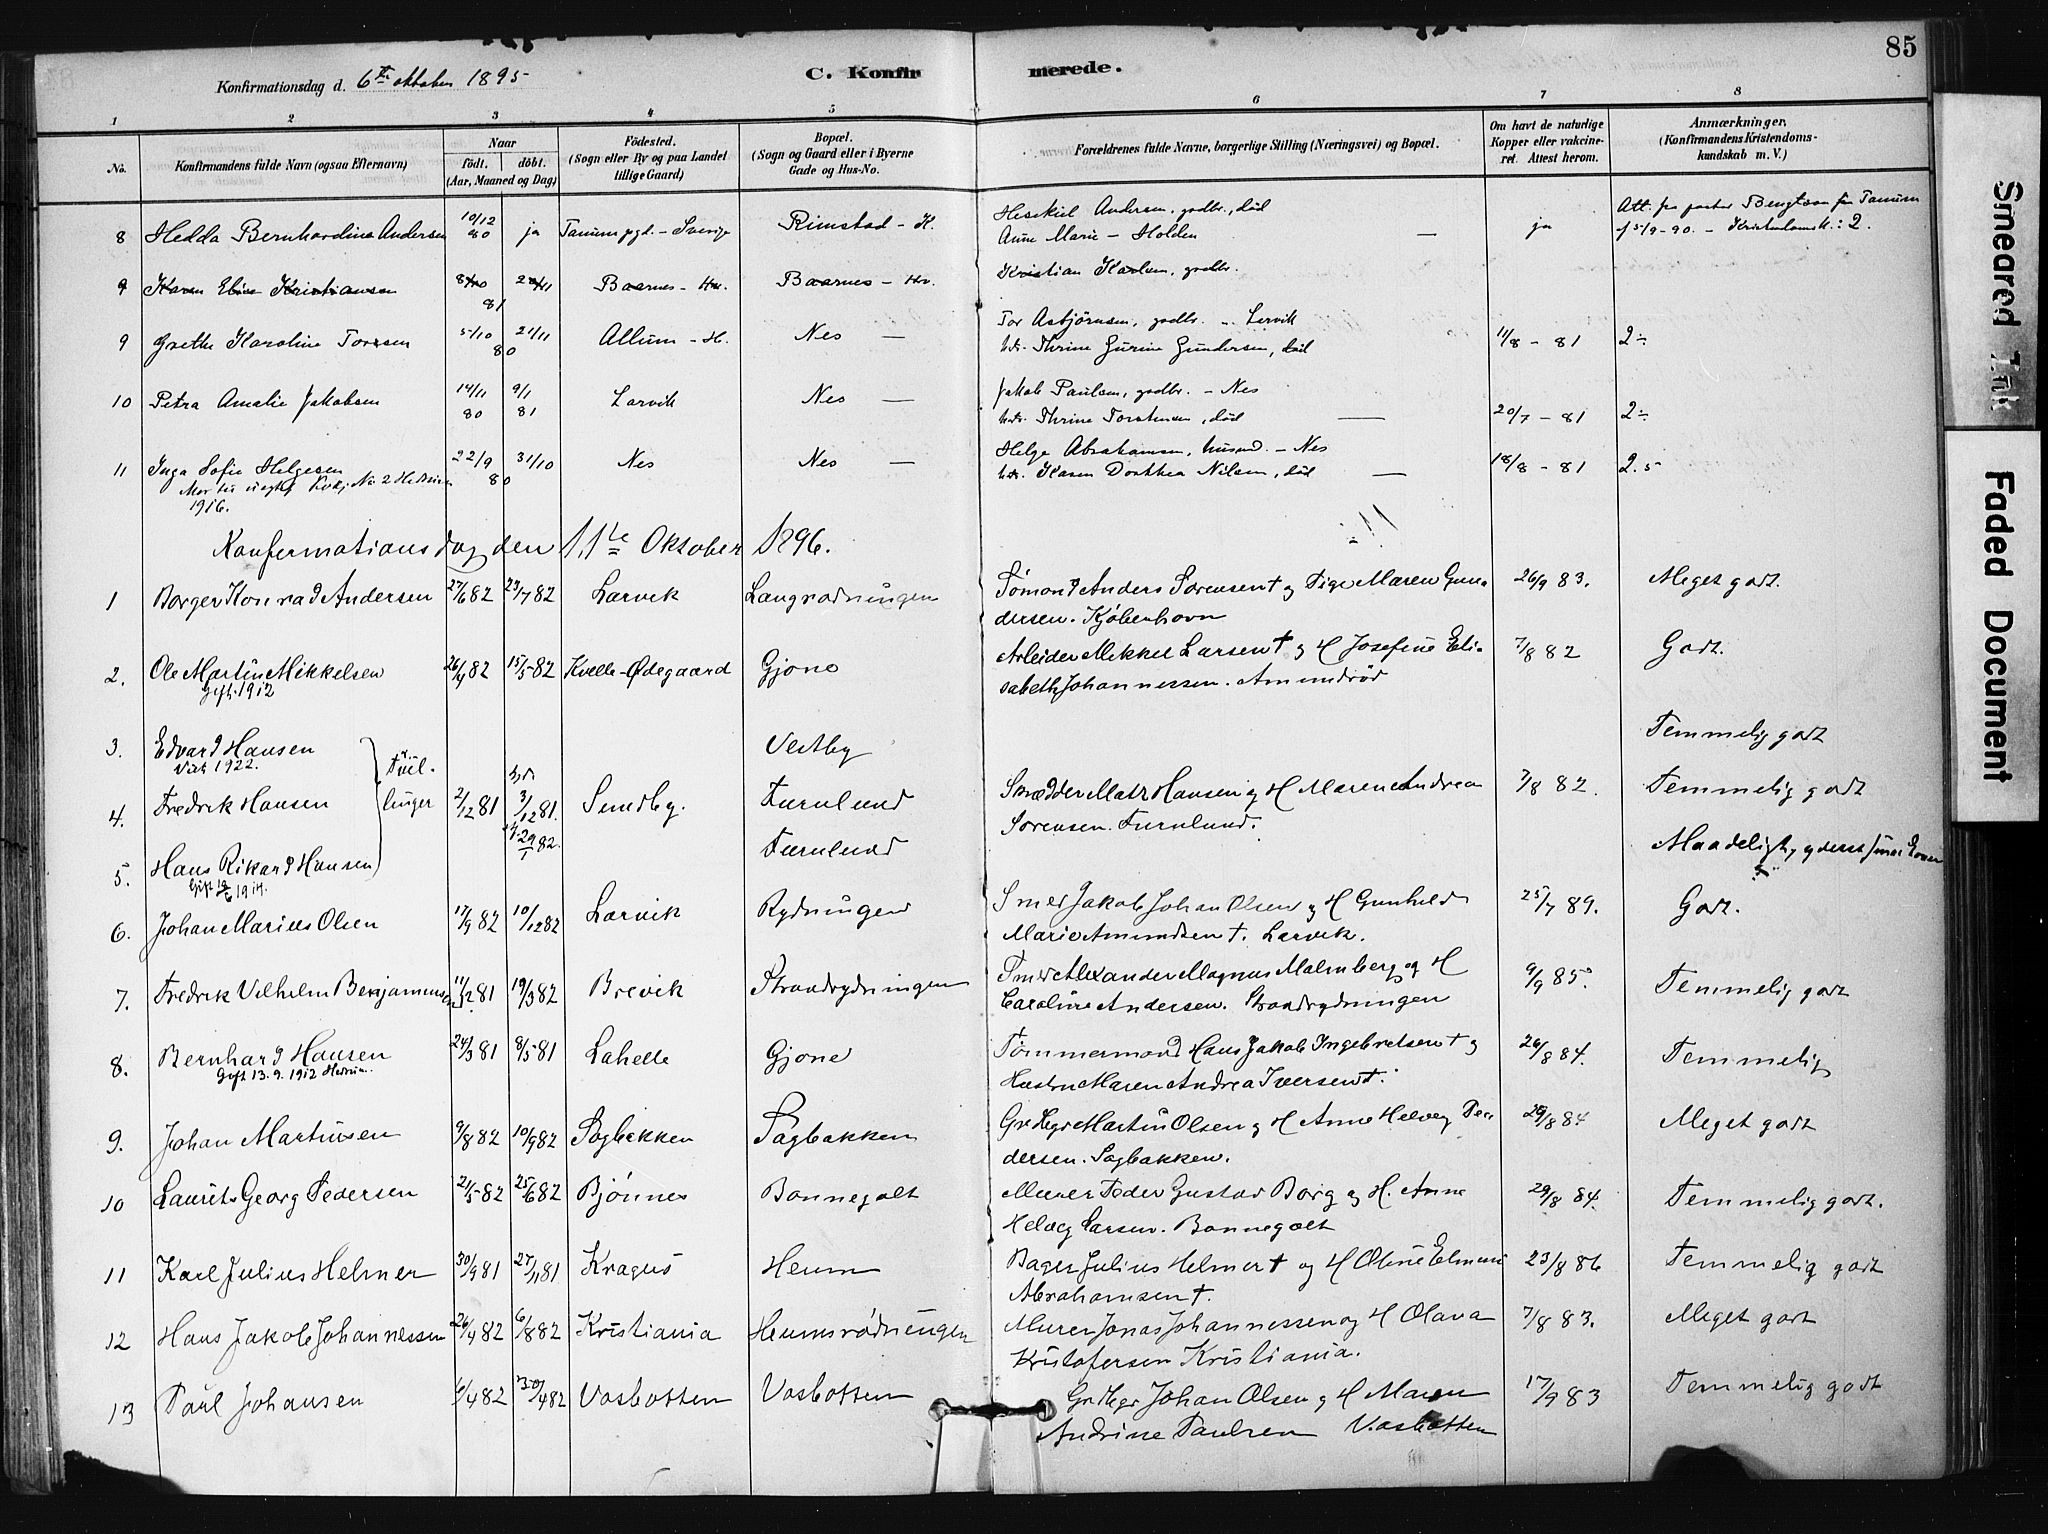 85
Konfirmationsdag d. 6te oktober 1895
C. Konfirmerede.
1 2 3 4 5 6 7 8
No. Konfirmandens fulde Navn (ogsaa Efternavn) Naar födt. döbt. (Aar, Maaned og Dag) Födested. (Sogn eller By og paa Landet tillige Gaard) Bopæl. (Sogn og Gaard eller i Byerne Gade og Hus-No. Forældrenes fulde Navne, borgerlige Stilling (Næringsvei) og Bopæl. Om havt de naturlige Kopper eller vakcineret. Attest herom. Anmærkninger. (Konfirmandens Kristendomskundskab m. V.)
8 Hedda Bernhardine Andersen 10/12 80 ja Tanum pgd. - Sverige Rimstad - H. Hesekiel Andersen, gadbr., död ja Att. fra pastor Bengtson fra Tanum
Anne Marie - Holden — f 5/9-90. - Kristendomsk: 2.
9 Karen Elise Kristiansen 8/10 81 Baarnes - Hv. Baarnes - Hv. Kristian Karlsen, gadbr.
9 Grethe Karoline Torsen 5/10 21/11 80 Allum - H. Nes — Tor Asbjörnsen, gadbr. - Lervik
Thrine Gurine Gundersen, död 11/8 - 81 2÷
10 Petra Amalie Jakobsen 14/11 80 9/1 81 Larvik Nes — Jakob Paulsen, gadbr. - Nes
Thrine Torstensen, död — 20/7 - 81 2÷
11 Inga Sofie Helgesen 22/9 31/10 80 Nes Nes — Helge Abrahamsen, husmd. - Nes
Karen Dorthea Nilsen, död — 18/8 - 81 2.5
Mor til uegte Kvkj. No 2 Hedrum
1916.
Konfermationsdag den 11te Oktober 1896.
1 Borger Konrad Andersen 27/6 82 23/7 82 Larvik Langrødningen Sömand Anders Sorensen † og Pige Maren Gun- 26/9 83. Meget godt.
dersen. Kjöbenhavn
2. Ole Martin Mikkelsen 26/4 82 15/5 82 Kvelle-Ødegaard Gjone Arbeider Mikkel Larsen † og H Josefine Eli- 7/8 82 Godt.
Gift. 1912 sabeth Johannessen. Amundröd
3. Edvard Hansen Vestby Temmelig godt
Viet 1922. Tvil-
4. Fredrik Hansen linger 2/12 81 3/12 81. Sundby. Furulund Skrædder Matz Hansen og H Maren Andrea 7/8 82. Temmelig godt
29/1 82. Sorensen. Furulund.
5. Hans Rikard Hansen Furulund Maadeligt, yderst smaa Evner
Gift 1914.
6. Johan Marius Olsen 17/9 82 10/12 82 Larvik Rydningen Smed Jakob Johan Olsen og H Gunhild 25/7 89. Godt.
Marie Amundsen †. Larvik.
7. Fredrik Vilhelm Benjaminsen 11/12 81 19/3 82 Brevik Strandrydningen Smed Alexander Magnus Malmberg og H 9/9 85 Temmelig godt
Caroline Andersen. Strandrydningen
8. Bernhard Hansen 24/3 81 8/5 81 Lahelle Gjone Tømmermand Hans Jakob Ingebretsen † og 26/8 84. Temmelig
Gift 13.9.1912 Hedrum. Hustru Maren Andrea Iversen †.
9. Johan Martinsen 9/8 82 10/9 82 Sagbakken Sagbakken Grdbgr Martin Olsen og H Anne Helveg Pe- 29/8 84 Meget godt
dersen. Sagbakken.
10 Laurits Georg Pedersen 21/5 82 25/6 82 Bjönnes Bonnegolt Murer Peder Gustav Borg og H. Anne 29/8 84. Temmelig godt.
Helveg Larsen. Bonnegolt
11 Karl Julius Helmer 30/9 81 27/11 81 Kragnæs Heum Bager Julius Helmer † og H Oline Elmine 23/8 86 Temmelig godt
Abrahamsen †.
12 Hans Jakob Johannessen 26/4 82 6/8 82 Kristiania Heumsrödningen Murer Jonas Johannessen og H Olava 7/8 83. Meget godt
Kristofersen Kristiania.
13 Paul Johansen 4/4 82 30/4 82 Vasbotten Vasbotten Grdbgr Johan Olsen og H Maren 17/9 83 Temmelig godt
Andrine Paulsen Vasbotten
Smeared Ink
Faded Document